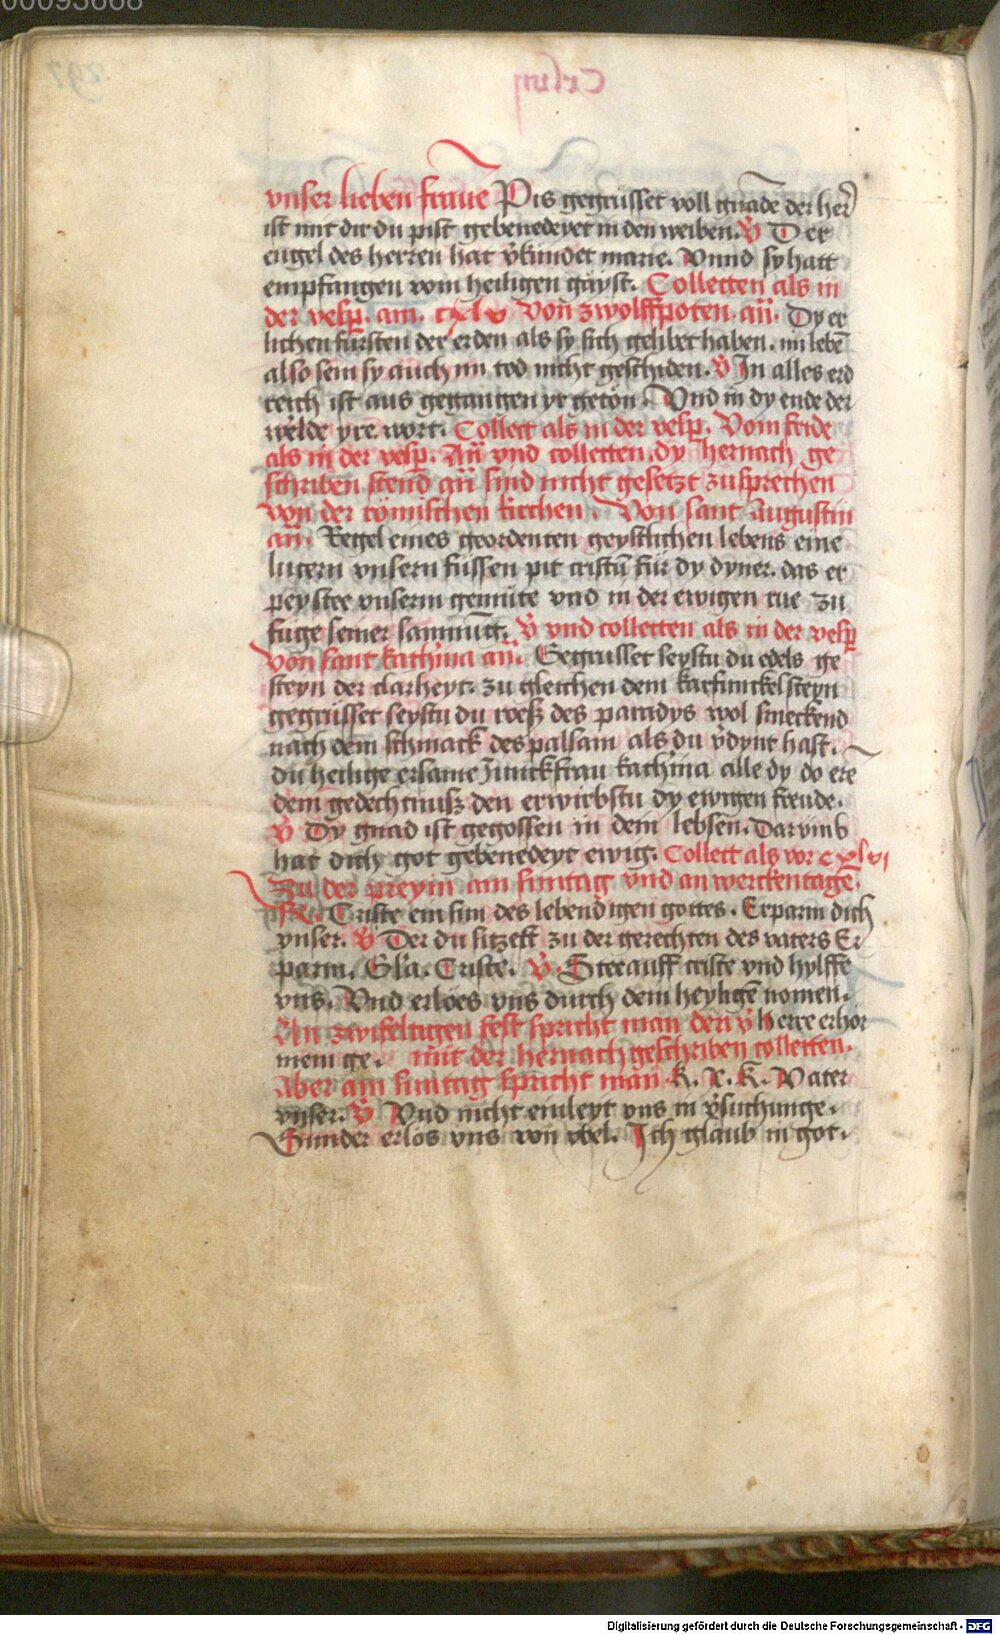 00093668
vnser lieben fraue͂ Pis gegrüsset voll gnade͂ der her͛
ist mit dir du pist gebenedeyet in den weiben. V͛ Der
engel des herren hat v͛kündet marie. Vnnd sy hatt
empfangen vom heiligen gäyst. Collecten als in
der vesp͛. am. cxlv Von zwolffpoten. an͂. Dy er
lichen fürsten der erden als sy sich gelibet haben. im lebe͂
also sein sy auch im tod nicht geschiden. V͛ In alles erd
reich ist aus gegangen yr getön. Vnd in dy ende der
welde yre wort. Collect als in der vesp͛. Vom fride
als in der vesp͛. An͂ vnd collecten. dy hernach ge
schriben stend an͂ sind nicht gesetzt zu sprechen
von der römischen kirchen. Von sant Augustin
an͂. Regel eines geordenten geystlichen lebens eine
lucern vnsern füssen pit cristu͂ für dy dyner. das er
peystee vnserm gemüte vnd in der ewigen rue zu
fuge seiner sammu͂g. V͛ vnd collecten als in der vesp͛
Von sant kath͛ina an͂. Gegrusset seystu du edels ge
steyn der clarheyt. zu gleichen dem karfunckelsteyn
gegrüsset seystu du roeß des paradys wol smeckend
nach dem schmack des palsam als du v͛dynt hast.
du heilige ersame Junckfrau kath͛ina alle dy do ere
dem gedechtnuß den erwirbstu dy ewigen freude.
V͛ Dy gnad ist gegossen in dem lebsen. Darvmb
hat dich got gebenedeyt ewig. Collect als vor cxlvj
Zu der preym am suntag vnd an werckentage͂.
R. Criste ein sun des lebendigen gottes. Erparm dich
vnser. V͛ Der du sitzest zu der gerechten des vaters Er
parm. Gl͛a. Criste. V͛. Stee auff criste vnd hylffe
vns. Vnd erloes vns durch dein heylige͂ nomen.
An zwifeltigen fest spricht man den v͛ Herre erhör
mein ge. mit der hernach geschriben collecten.
Aber am suntag spricht man K. X. K. Vater
vnser. V͛ Vnd nicht einleyt vns in v͛suchunge.
Sunder erlös vns von vbel. Ich glaub in got.
Digitalisierung gefördert durch die Deutsche Forschungsgemeinschaft - DFG